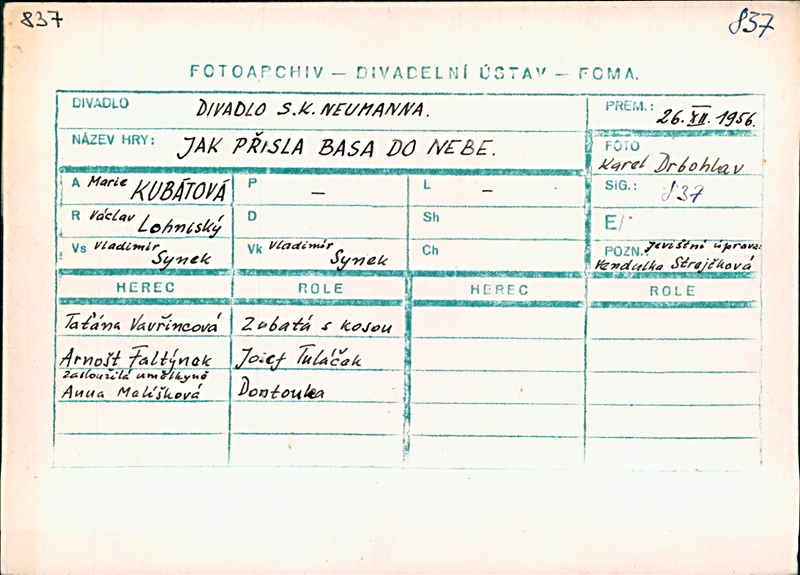 837
837
FOTOARCHIV — DIVADELNÍ ÚSTAV — FOMA.
DIVADLO DIVADLO S.K. NEUMANNA.
PREM.: 26. XII. 1956.
NÁZEV HRY: JAK PŘISLA BASA DO NEBE.
FOTO Karel Drbohlav
A Marie KUBÁTOVÁ P – L –
SIG.: 837
R Václav Lohniský D Sh
E/
Vs Vladimír Synek Vk Vladimír Synek Ch
POZN. jevištní úprava:
Vendulka Strejčková
HEREC ROLE HEREC ROLE
Taťána Vavřincová Zubatá s kosou
Arnošt Faltýnek Josef Tuláček
Zasloužilá umělkyně
Anna Melíšková